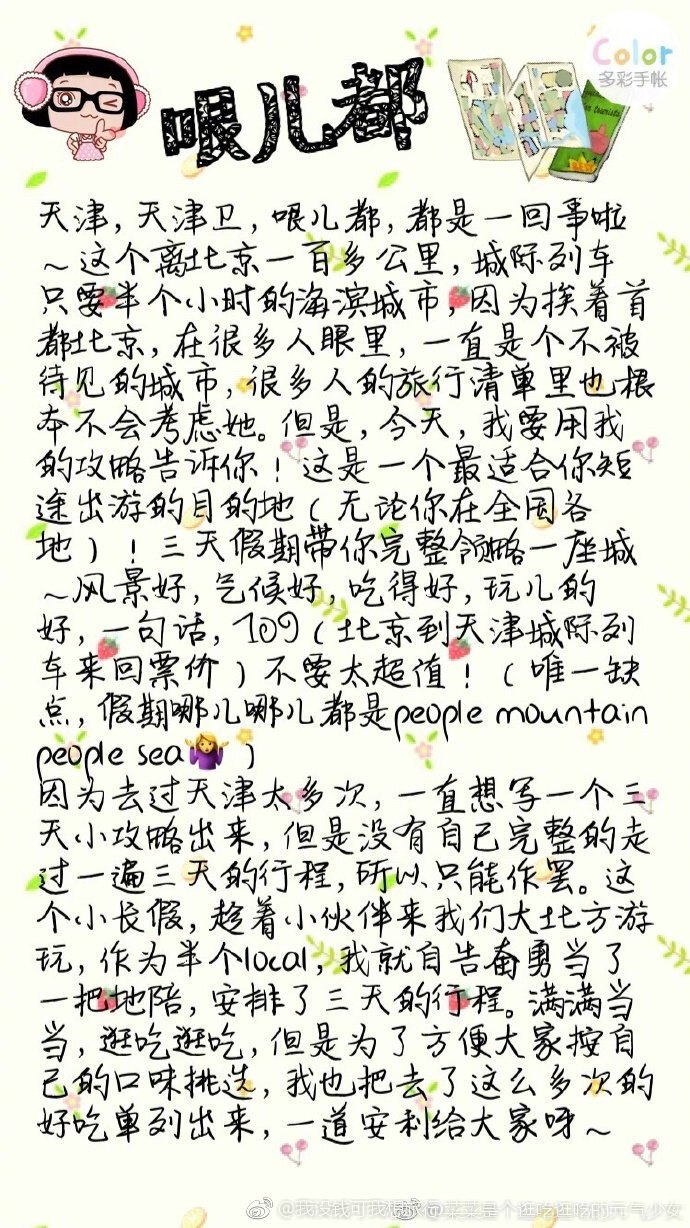 Color
多彩手帐
哏儿都
天津，天津卫，哏儿都，都是一回事啦
~这个离北京一百多公里，城际列车
只要半个小时的海滨城市，因为挨着首
都北京，在很多人眼里，一直是个不被
待见的城市，很多人的旅行清单里也根
本不会考虑她。但是，今天，我要用我
的攻略告诉你！这是一个最适合你短
途出游的目的地（无论你在全国各
地）！三天假期带你完整领略一座城
~风景好，气候好，吃得好，玩儿的
好，一句话，109（北京到天津城际列
车来回票价）不要太超值！（唯一缺
点，假期哪儿哪儿都是people mountain
people sea🤷‍♀️）
因为去过天津太多次，一直想写一个三
天小攻略出来，但是没有自己完整的走
过一遍三天的行程，所以只能作罢。这
个小长假，趁着小伙伴来我们大北方游
玩，作为半个local，我就自告奋勇当了
一把地陪，安排了三天的行程。满满当
当，逛吃逛吃，但是为了方便大家按自
己的口味挑选，我也把去了这么多次的
好吃单列出来，一道安利给大家呀~
@我没钱可我很旅行@菜菜是个逛吃逛吃的元气少女